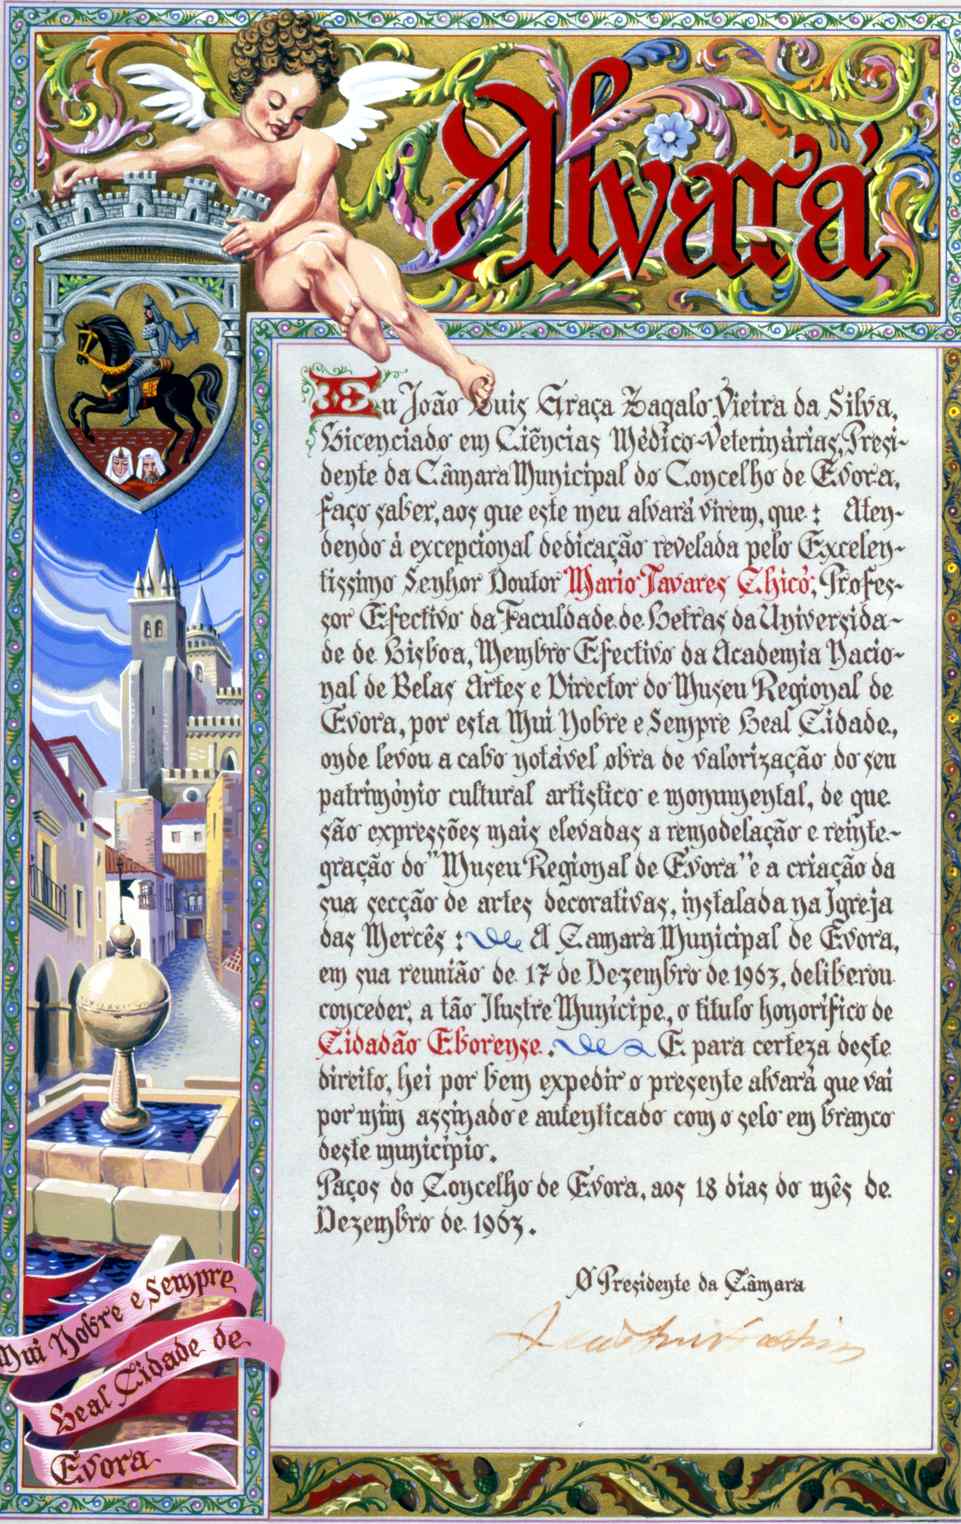 Alvará
Eu João Luis Graça Zagalo Vieira da Silva,
Licenciado em Ciências Médico-Veterinárias, Presi-
dente da Câmara Municipal do Concelho de Évora,
faço saber, aos que este meu alvará virem, que: Aten-
dendo á excepcional dedicação revelada pelo Excelen-
tissimo Senhor Doutor Mario Tavares Chicó, Profes-
sor Efectivo da Faculdade de Letras da Universida-
de de Lisboa, Membro Efectivo da Academia Nacio-
nal de Belas Artes e Director do Museu Regional de
Évora, por esta Mui Nobre e Sempre Leal Cidade,
onde levou a cabo notável obra de valorização do seu
património cultural artistico e monumental, de que
são expressões mais elevadas a remodelação e reinte-
gração do "Museu Regional de Évora" e a criação da
sua secção de artes decorativas, instalada na Igreja
das Mercês: A Camara Municipal de Évora,
em sua reunião de 17 de Dezembro de 1963, deliberou
conceder, a tão Ilustre Munícipe, o titulo honorífico de
Cidadão Eborense. E para certeza deste
direito, hei por bem expedir o presente alvará que vai
por mim assinado e autenticado com o selo em branco
deste município.
Paços do Concelho de Évora, aos 18 dias do mês de
Dezembro de 1963.
O Presidente da Câmara
Mui Nobre e Sempre
Leal Cidade de
Évora